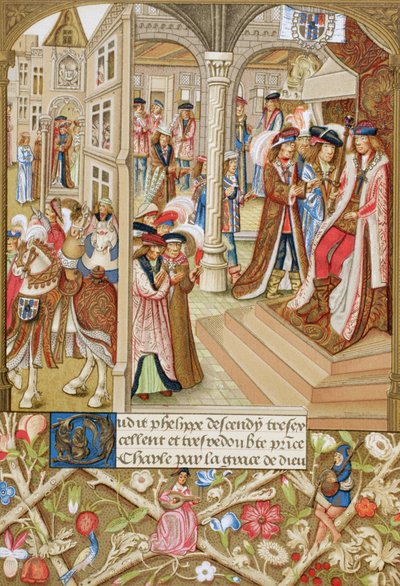 Dudit phelippe descendy tresex
cellent et tresredoubte prince
Charle par la grace de dieu